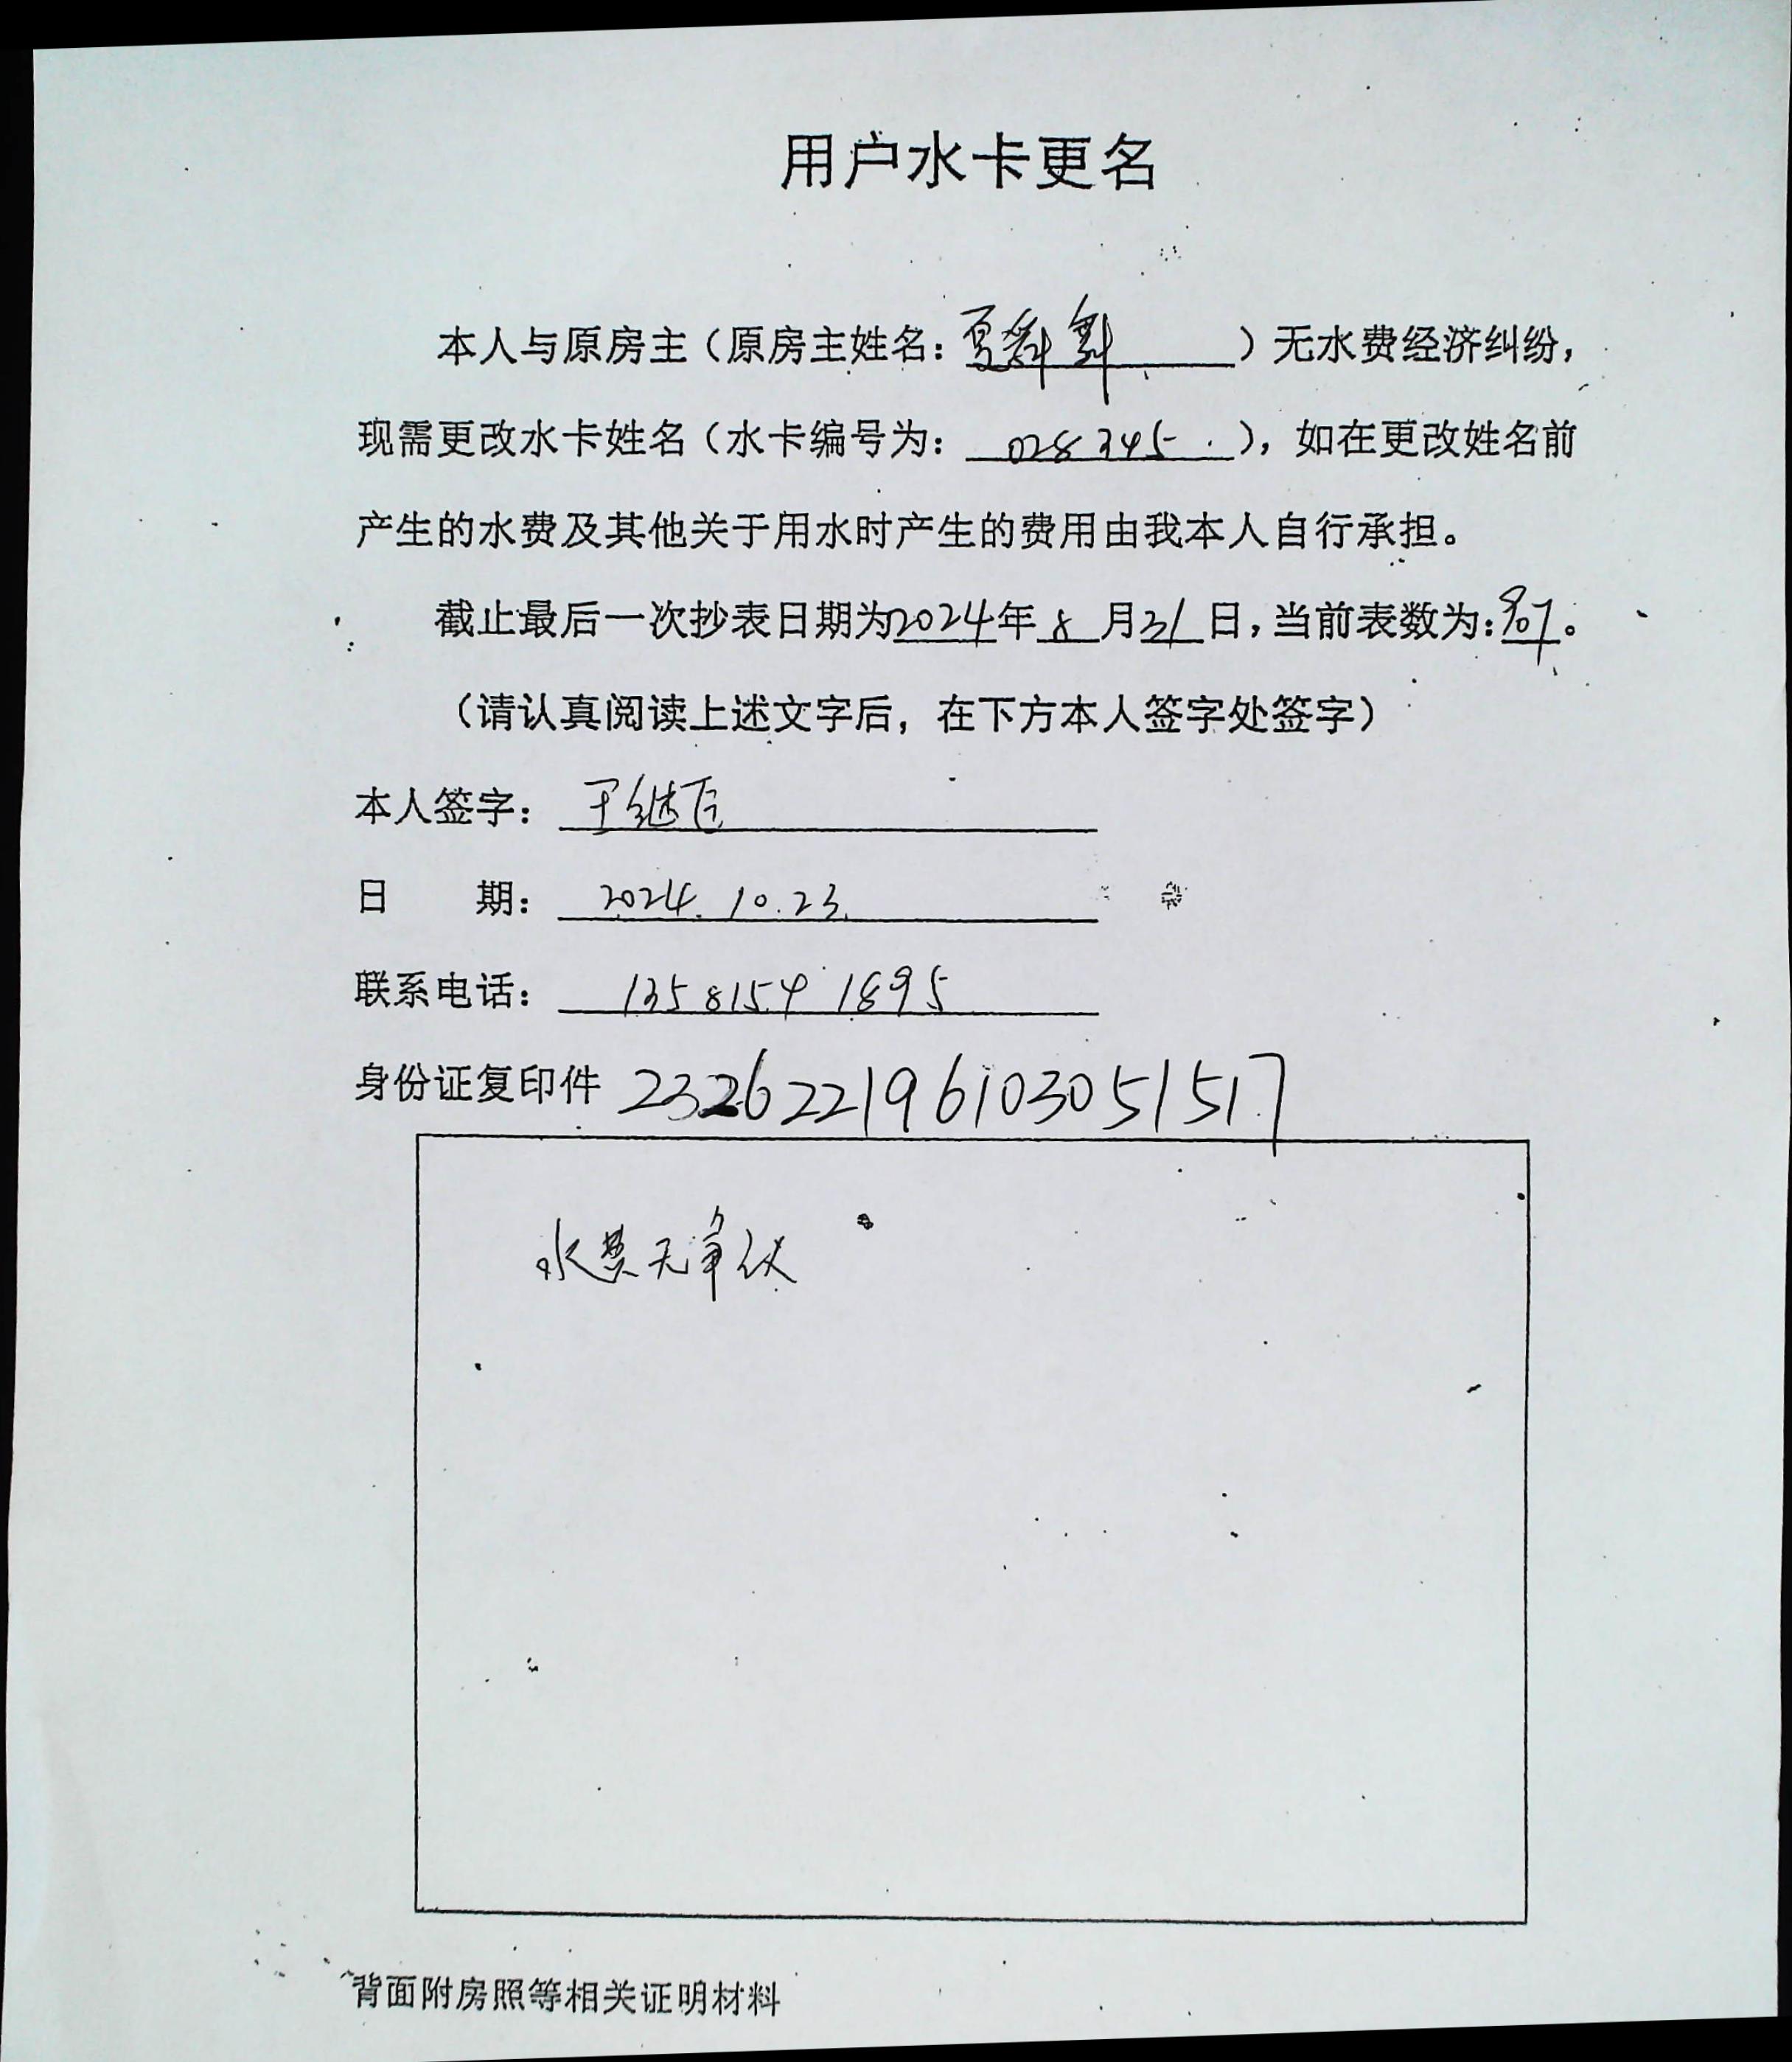 用户水卡更名
本人与原房主（原房主姓名：夏）无水费经济纠纷，
现需更改水卡姓名（水卡编号为：028345），如在更改姓名前
产生的水费及其他关于用水时产生的费用由我本人自行承担。
截止最后一次抄表日期为2024年8月31日，当前表数为：。
（请认真阅读上述文字后，在下方本人签字处签字）
本人签字：于继飞
日 期：2024.10.23.
联系电话：13581541895
身份证复印件 232622196103051517
水费无争议
背面附房照等相关证明材料